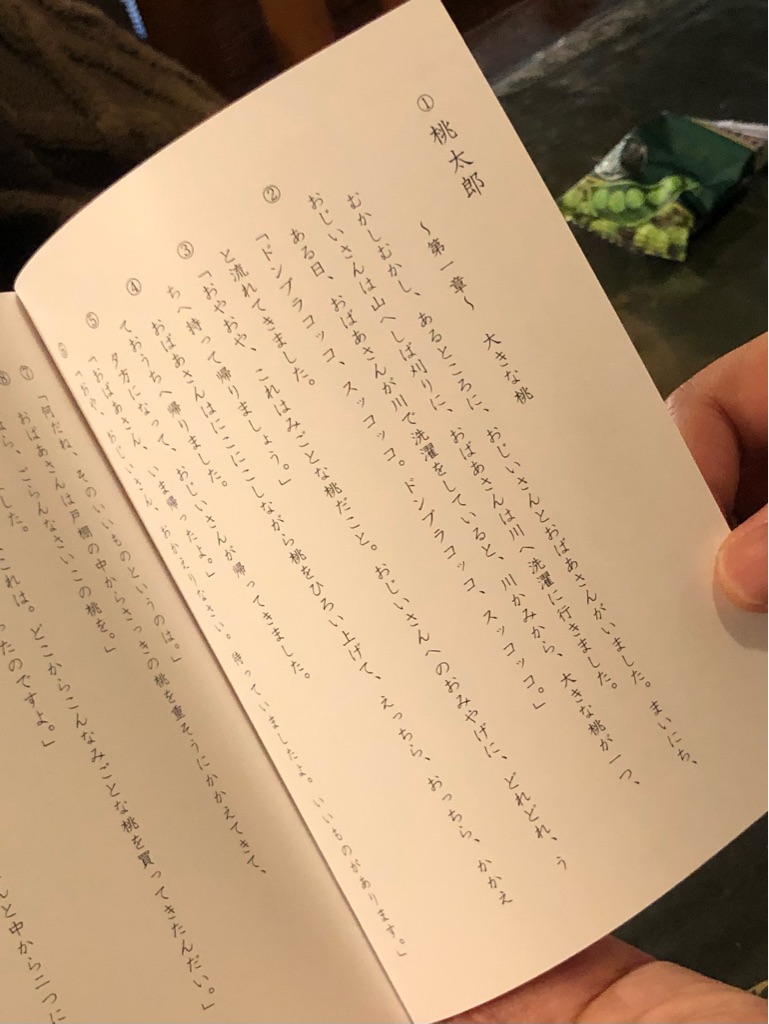 ① 桃太郎
～第一章～　大きな桃
むかしむかし、あるところに、おじいさんとおばあさんがいました。まいにち、
おじいさんは山へしば刈りに、おばあさんは川へ洗濯に行きました。
② ある日、おばあさんが川で洗濯をしていると、川かみから、大きな桃が一つ、
「ドンブラコッコ、スッコッコ。ドンブラコッコ、スッコッコ。」
と流れてきました。
③ 「おやおや、これはみごとな桃だこと。おじいさんへのおみやげに、どれどれ、う
ちへ持って帰りましょう。」
おばあさんはにこにこしながら桃をひろい上げて、えっちら、おっちら、かかえ
ておうちへ帰りました。
④ 夕方になって、おじいさんが帰ってきました。
⑤ 「おばあさん、いま帰ったよ。」
「おや、おじいさん、おかえりなさい。待っていましたよ。いいものがあります。」
⑦ 「何だね、そのいいものというのは。」
おばあさんは戸棚の中からさっきの桃を重そうにかかえてきて、
ら、ごらんなさいこの桃を。」
これは。どこからこんなみごとな桃を買ってきたんだい。」
ったのですよ。」
と中から二つに